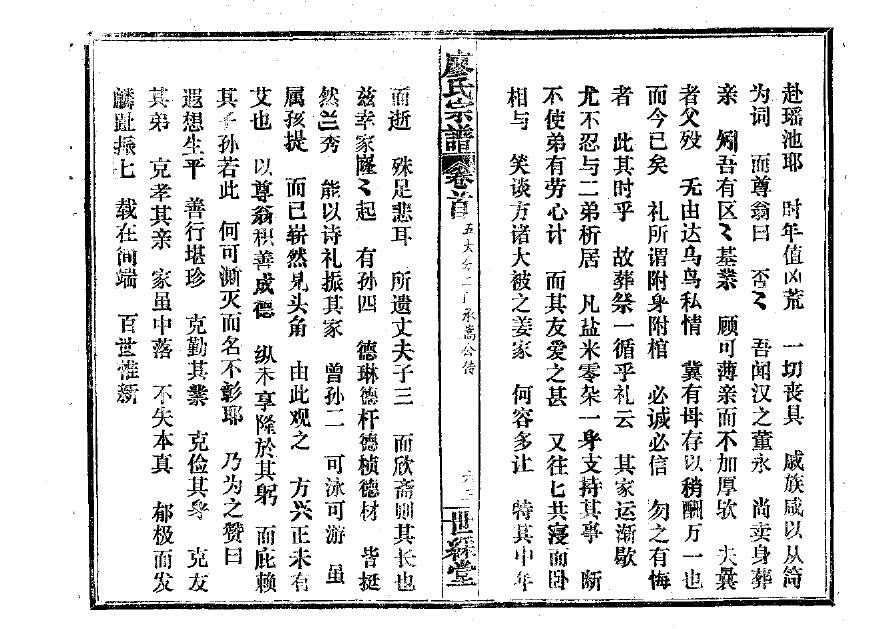 赴瑶池耶 时年值凶荒 一切丧具 戚族咸以从简
为词 而尊翁曰 否〻 吾闻汉之董永 尚卖身葬
亲 矧吾有区〻基業 顾可薄亲而不加厚欤 夫曩
者父殁 无由达乌鸟私情 冀有母存以稍酬万一也
而今已矣 礼所谓附身附棺 必诚必信 勿之有悔
者 此其时乎 故葬祭一循乎礼云 其家运渐歇
尤不忍与二弟析居 凡盐米零杂一身支持其事 断
不使弟有劳心计 而其友爱之甚 又往匕共寝而卧
相与 笑谈方诸大被之姜家 何容多让 特其中年
廖氏宗譜 卷首 承嵩公传 世綵堂
而逝 殊足悲耳 所遗丈夫子三 而欣斋则其长也
兹幸家隆〻起 有孙四 德琳德杆德桢德材 皆挺
然兰秀 能以诗礼振其家 曾孙二 可泳可游 虽
属孩提 而已崭然见头角 由此观之 方兴正未有
艾也 以尊翁积善成德 纵未享隆於其躬 而庇赖
其子孙若此 何可澌灭而名不彰耶 乃为之赞曰
遐想生平 善行堪珍 克勤其業 克俭其身 克友
其弟 克孝其亲 家虽中落 不失本真 郁极而发
麟趾振七 载在简端 百世惟新